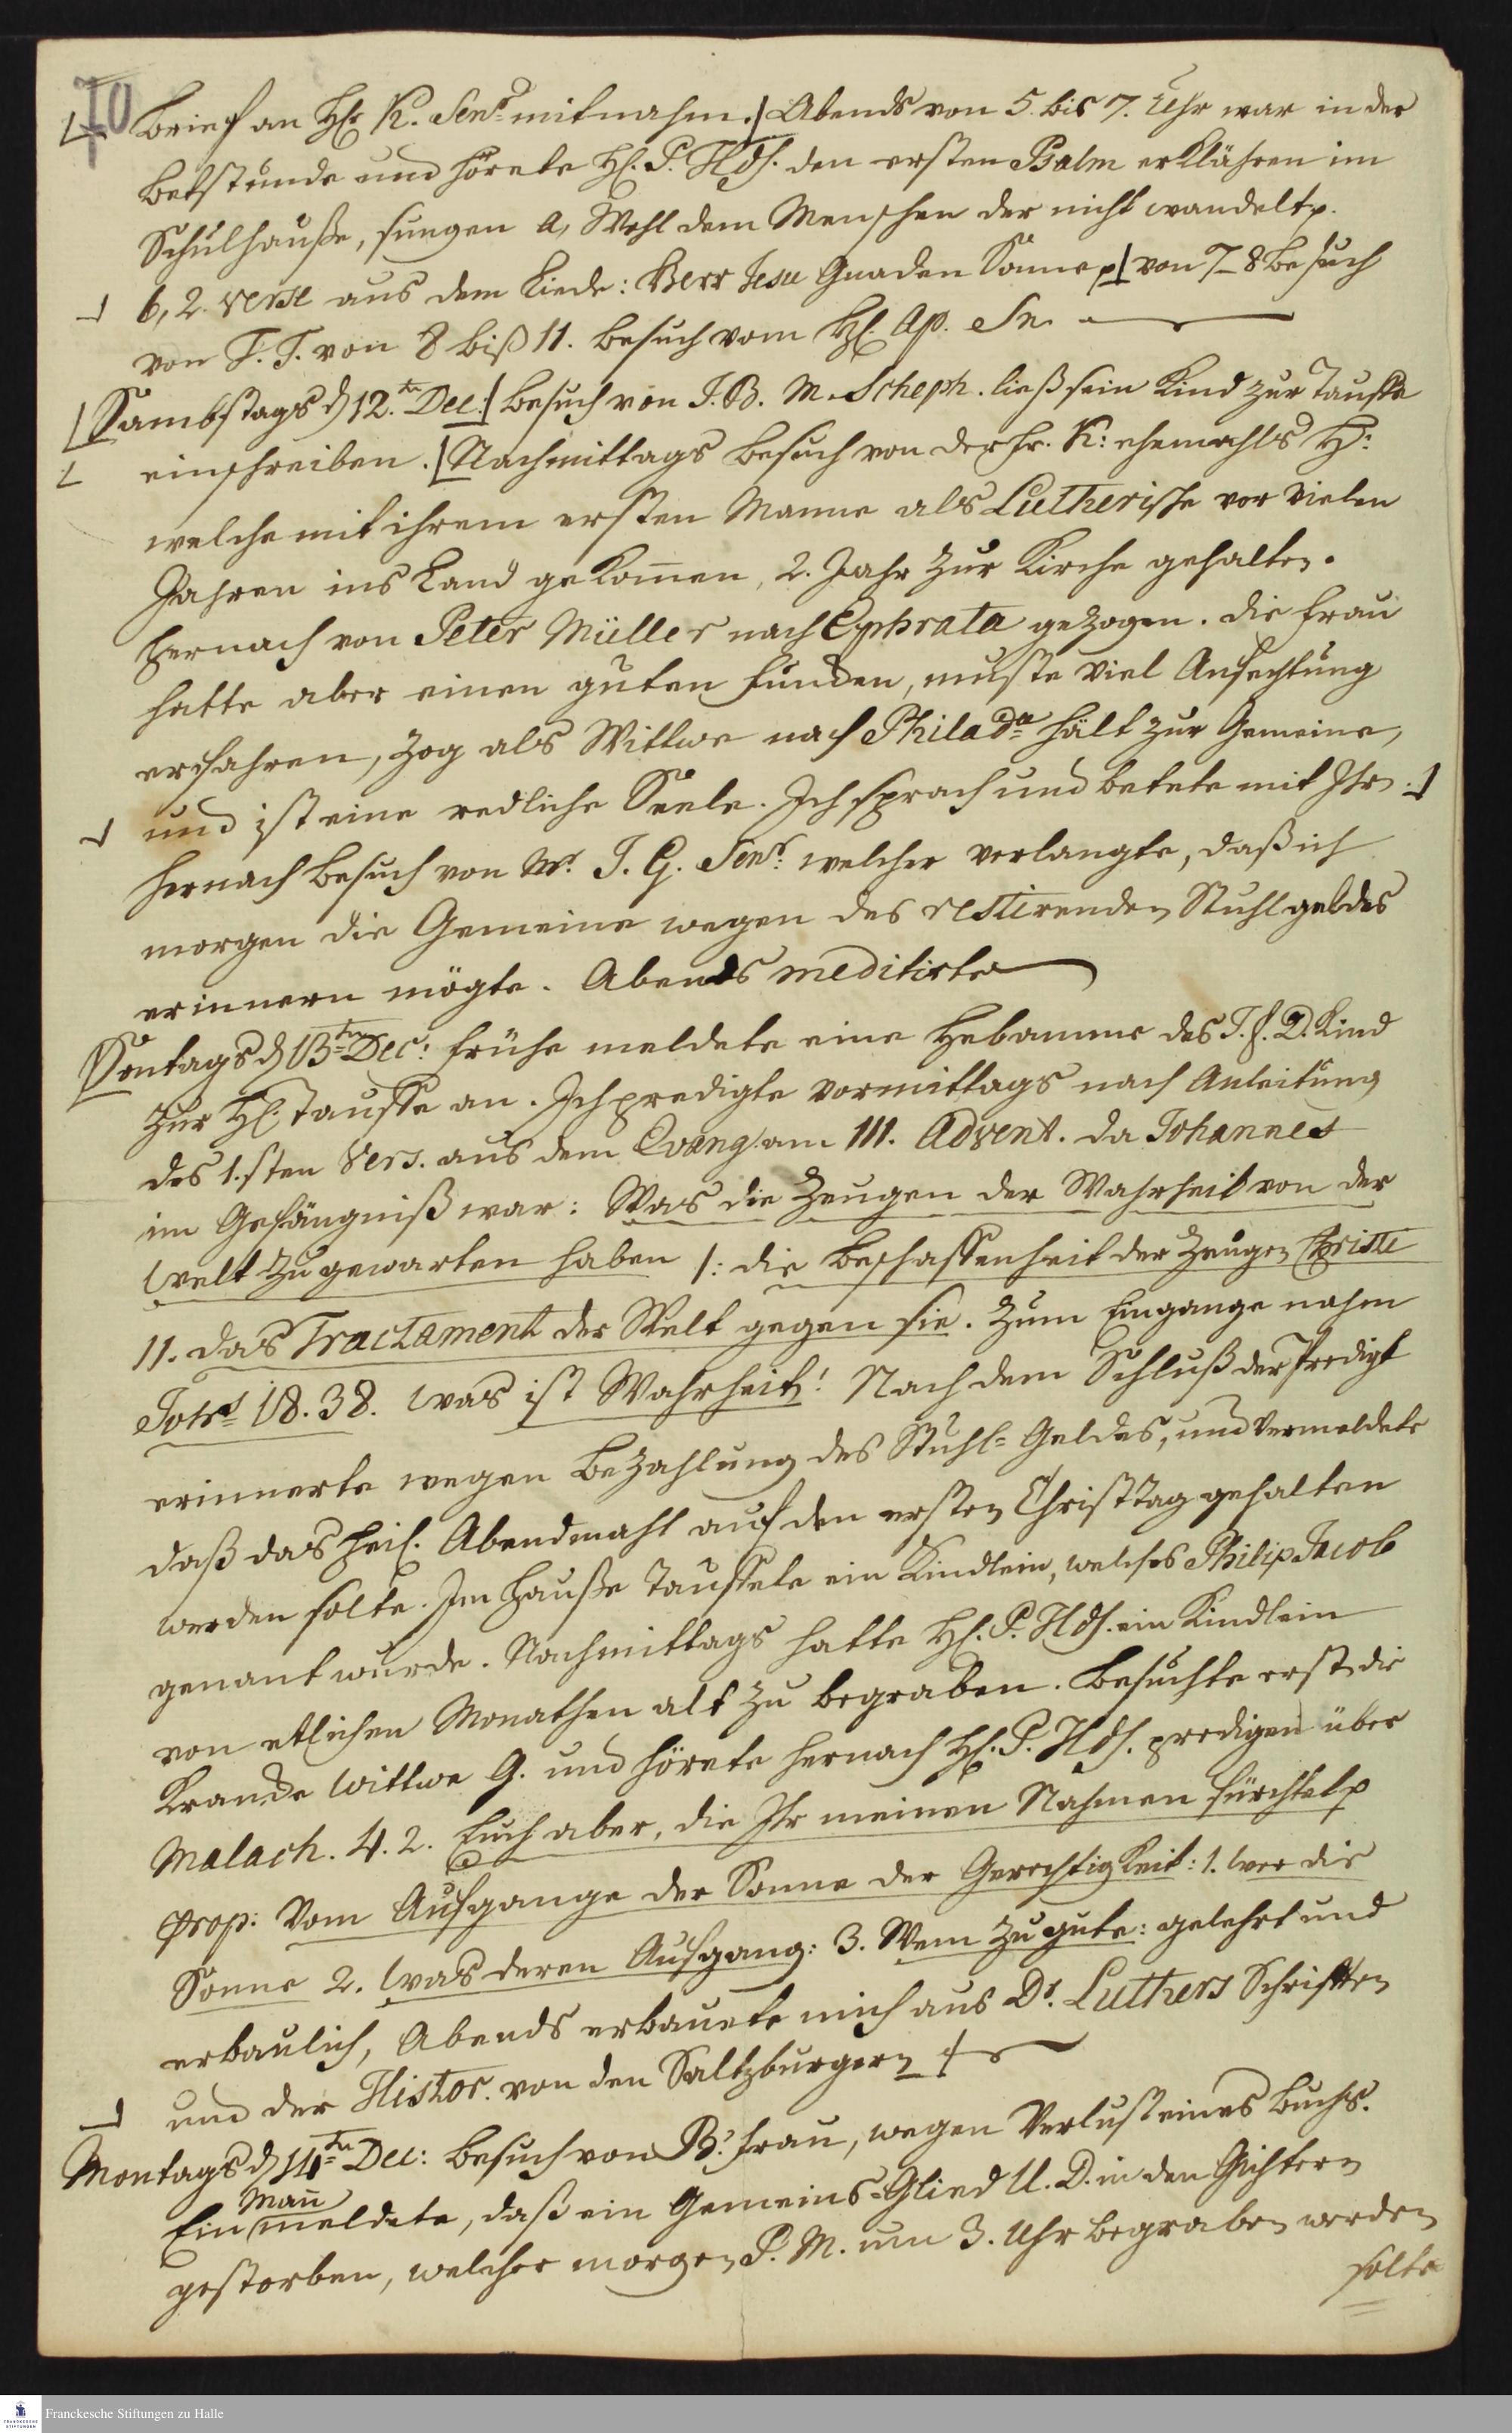 70
Brief an H. K. Senr. mitnahm. Abends von 5. bis 7. Uhr war in der
Betstunde und hörete H. P. Hdsh. den ersten Psalm erklähren im
Schulhauße, sungen a, Wohl dem Menschen der nicht wandelt p.
6, 2. verse aus dem Liede: Herr Jesu Gnaden Sonne p von 7–8 besuch
von F. T. von 8 biß 11. besuch vom H. Ap. Sn.
Sambstags d 12.tn Dec: besuch von J. B. M. Scheph. ließ sein Kind zur Tauffe
einschreiben. Nachmittags besuch von der Fr. K: ehemahls H:
welche mit ihrem ersten Manne als Lutherische vor vielen
Jahren ins Land gekom̄en, 2. Jahr zur Kirche gehalten.
Hernach von Peter Müller nach Ephrata gezogen. Die Frau
hatte aber einen guten funden, muste viel Anfechtung
erfahren, zog als Wittwe nach Philada hält zur Gemeine,
und ist eine redliche Seele. Ich sprach und betete mit Ihr.
hernach besuch von Mr. J. G. Senr. welcher verlangte, daß ich
morgen die Gemeine wegen des restirenden Stuhlgeldes
erinnern mögte. Abends meditirte
Sontags d 13tn Dec: frühe meldete eine Hebamme des J. f. D. Kind
zur H. Tauffe an. Ich predigte vormittags nach Anleitung
des 1.sten Vers. aus dem Evang. am III. Advent. da Johannes
im Gefängniß war: Was die Zeugen der Wahrheit von der
Welt zugewarten haben /: die Beschaffenheit der Zeugen Christi
11. das Tractament der Welt gegen sie. Zum Eingange nahm
Johs 18. 38. was ist Wahrheit! Nach dem Schluß der Predigt
erinnerte wegen Bezahlung des Stuhl=Geldes, und vermeldete
daß das heil. Abendmahl auf den ersten Christtag gehalten
werden solte. Im Hauße Tauffete ein Kindlein, welches Philip Jacob
genant wurde. Nachmittags hatte H. P. Hdsh. ein Kindlein
von etlichen Monathen alt zu begraben. Besuchte erst die
Krancke Wittwe G. und hörete hernach H. P. Hdsh. predigen über
Malach. 4. 2. Euch aber, die Ihr meinen Nahmen fürchtet p
prop: Vom Aufgange der Sonne der Gerechtigkeit: 1. wer die
Sonne 2. was deren Aufgang: 3. Wem zu gute: gelehrt und
erbaulich, Abends erbauete mich aus Dr. Luthers Schrifften
und der Histor. von den Saltzburgern
Montags d 14tn Dec: besuch von B: frau, wegen Verlust eines Buchs.
Ein Man̄ meldete, daß ein Gemeins=Glied U. D. in den Gichtern
gestorben, welcher morgen P. M. um 3. Uhr begraben werden
solte
Franckesche Stiftungen zu Halle